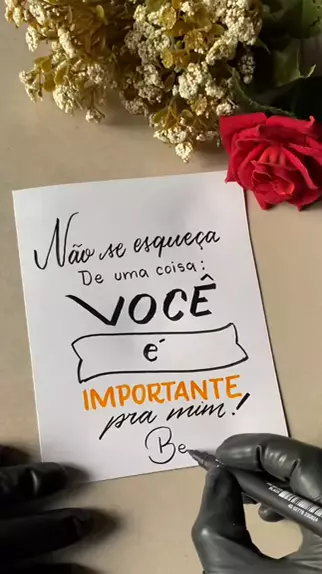 Não se esqueça
De uma coisa:
VOCÊ
é
IMPORTANTE
pra mim!
Be